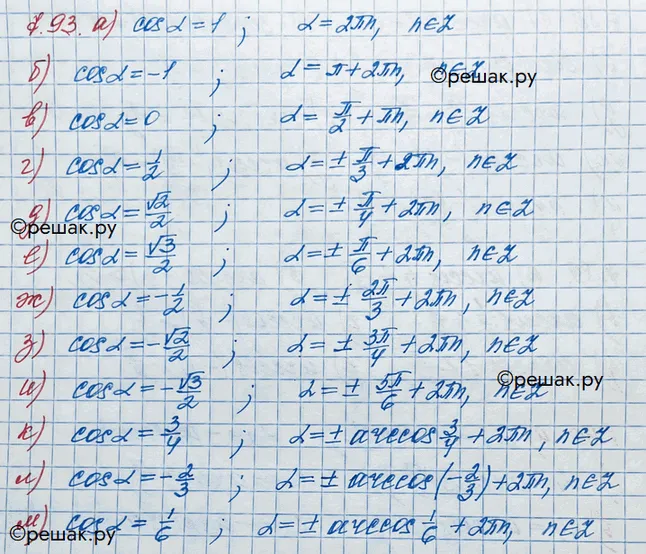 7.93. а) cosα = 1; α = 2πn, n∈Z
б) cosα = -1; α = π + 2πn, n∈Z
©решак.ру
в) cosα = 0; α = π/2 + πn, n∈Z
г) cosα = 1/2; α = ± π/3 + 2πn, n∈Z
д) cosα = √2/2; α = ± π/4 + 2πn, n∈Z
©решак.ру
е) cosα = √3/2; α = ± π/6 + 2πn, n∈Z
ж) cosα = -1/2; α = ± 2π/3 + 2πn, n∈Z
з) cosα = -√2/2; α = ± 3π/4 + 2πn, n∈Z
и) cosα = -√3/2; α = ± 5π/6 + 2πn, n∈Z
©решак.ру
к) cosα = 3/4; α = ± arccos 3/4 + 2πn, n∈Z
л) cosα = -2/3; α = ± arccos(-2/3) + 2πn, n∈Z
м) cosα = 1/6; α = ± arccos 1/6 + 2πn, n∈Z
©решак.ру